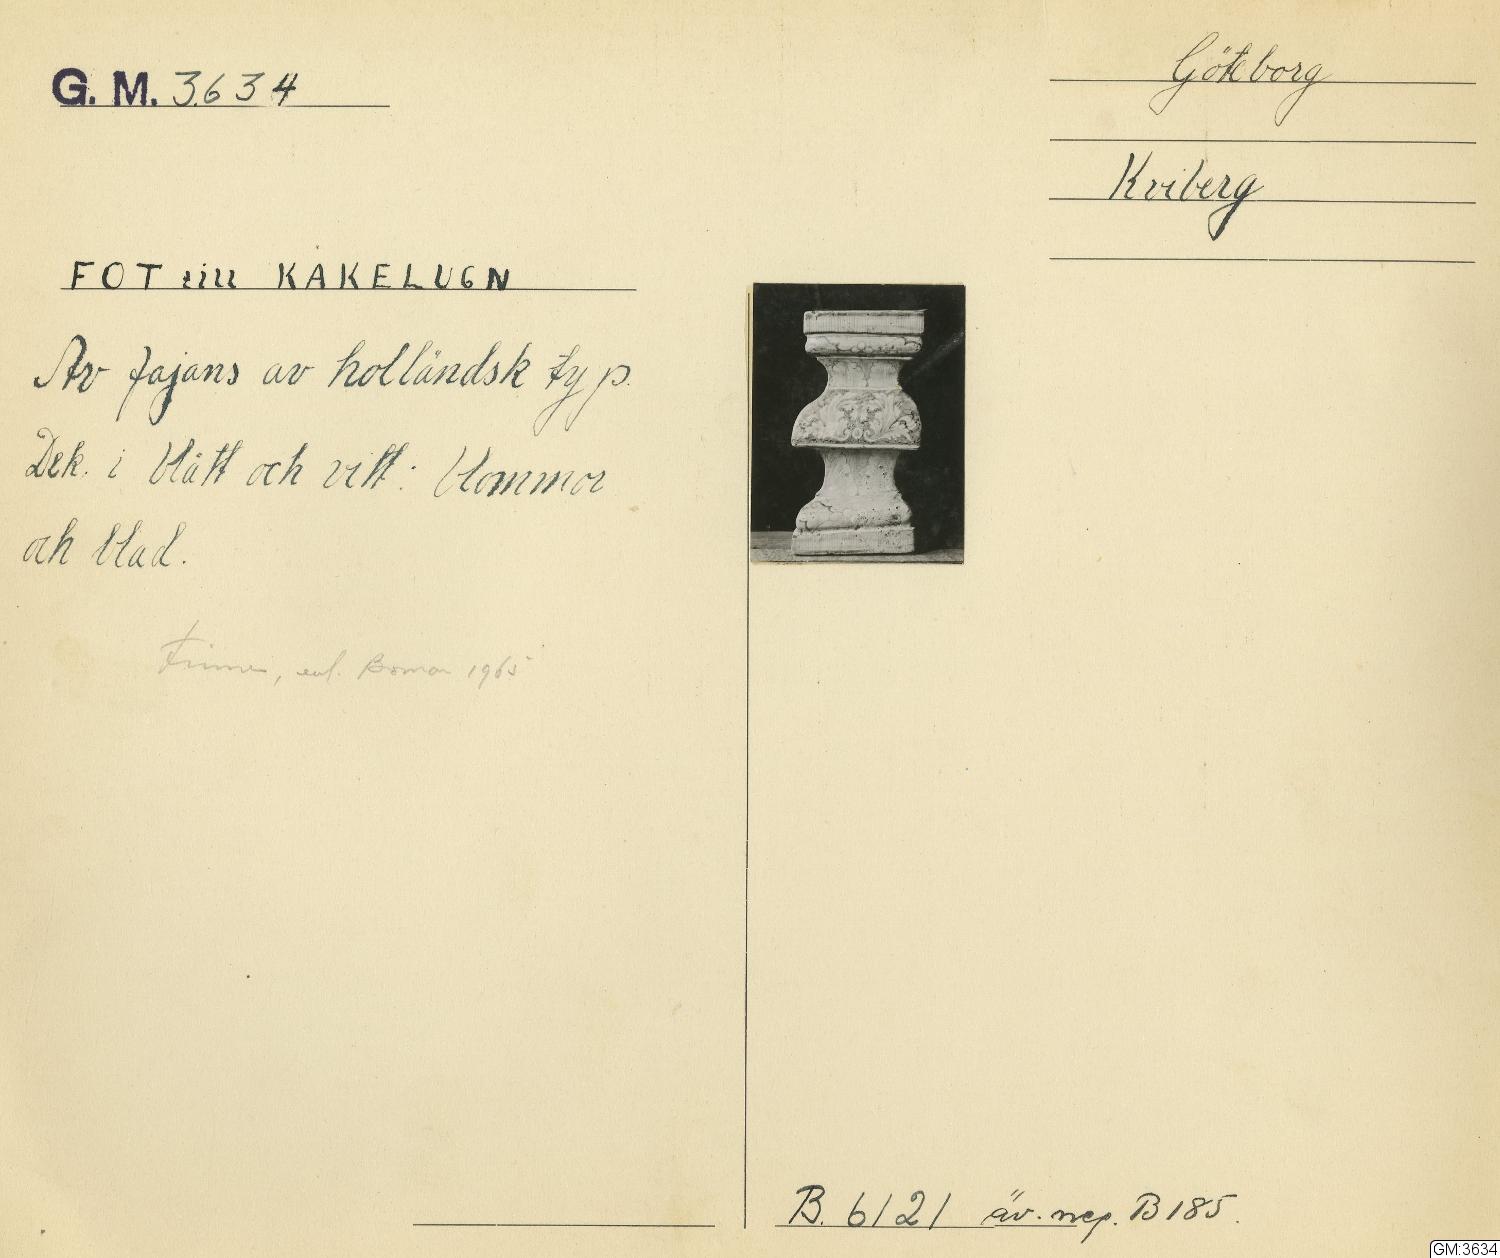 G. M. 3634
Göteborg
Kviberg
FOT till KAKELUGN
Av fajans av holländsk typ.
Dek. i blått och vitt: blommor
och blad.
Finnes, enl. 1965
B. 6121 äv. neg. B 185.
GM:3634